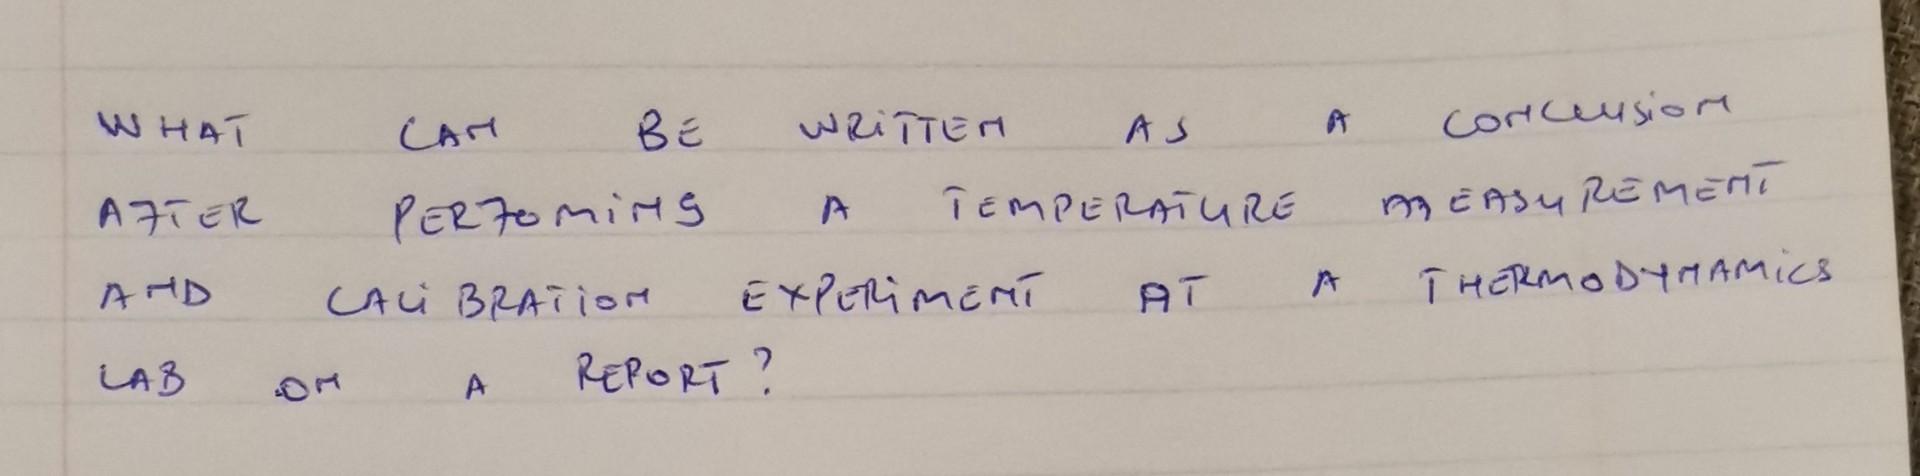 WHAT CAN BE WRITTEN AS A CONCLUSION
AFTER PERFOMING A TEMPERATURE MEASUREMENT
AND CALIBRATION EXPERIMENT AT A THERMODYNAMICS
LAB ON A REPORT?